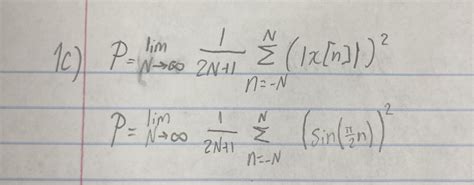 1c) P = lim N→∞ 1/(2N+1) Σ n=-N N (|x[n]|)²
P = lim N→∞ 1/(2N+1) Σ n=-N N (sin(π/2 n))²